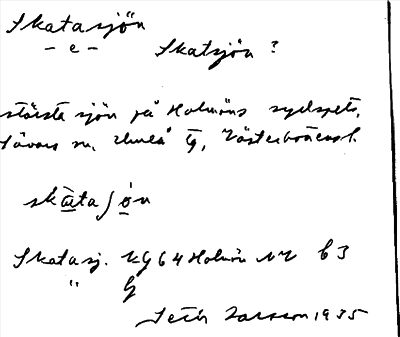 Skatasjön
– e –   Skatsjön ?
största sjön på Holmöns sydspets,
Sävars sn. Umeå tg, Västerbottensl.
Skatasj. Kg 64 Holmön NV b3
"
Seth Larsson 1935